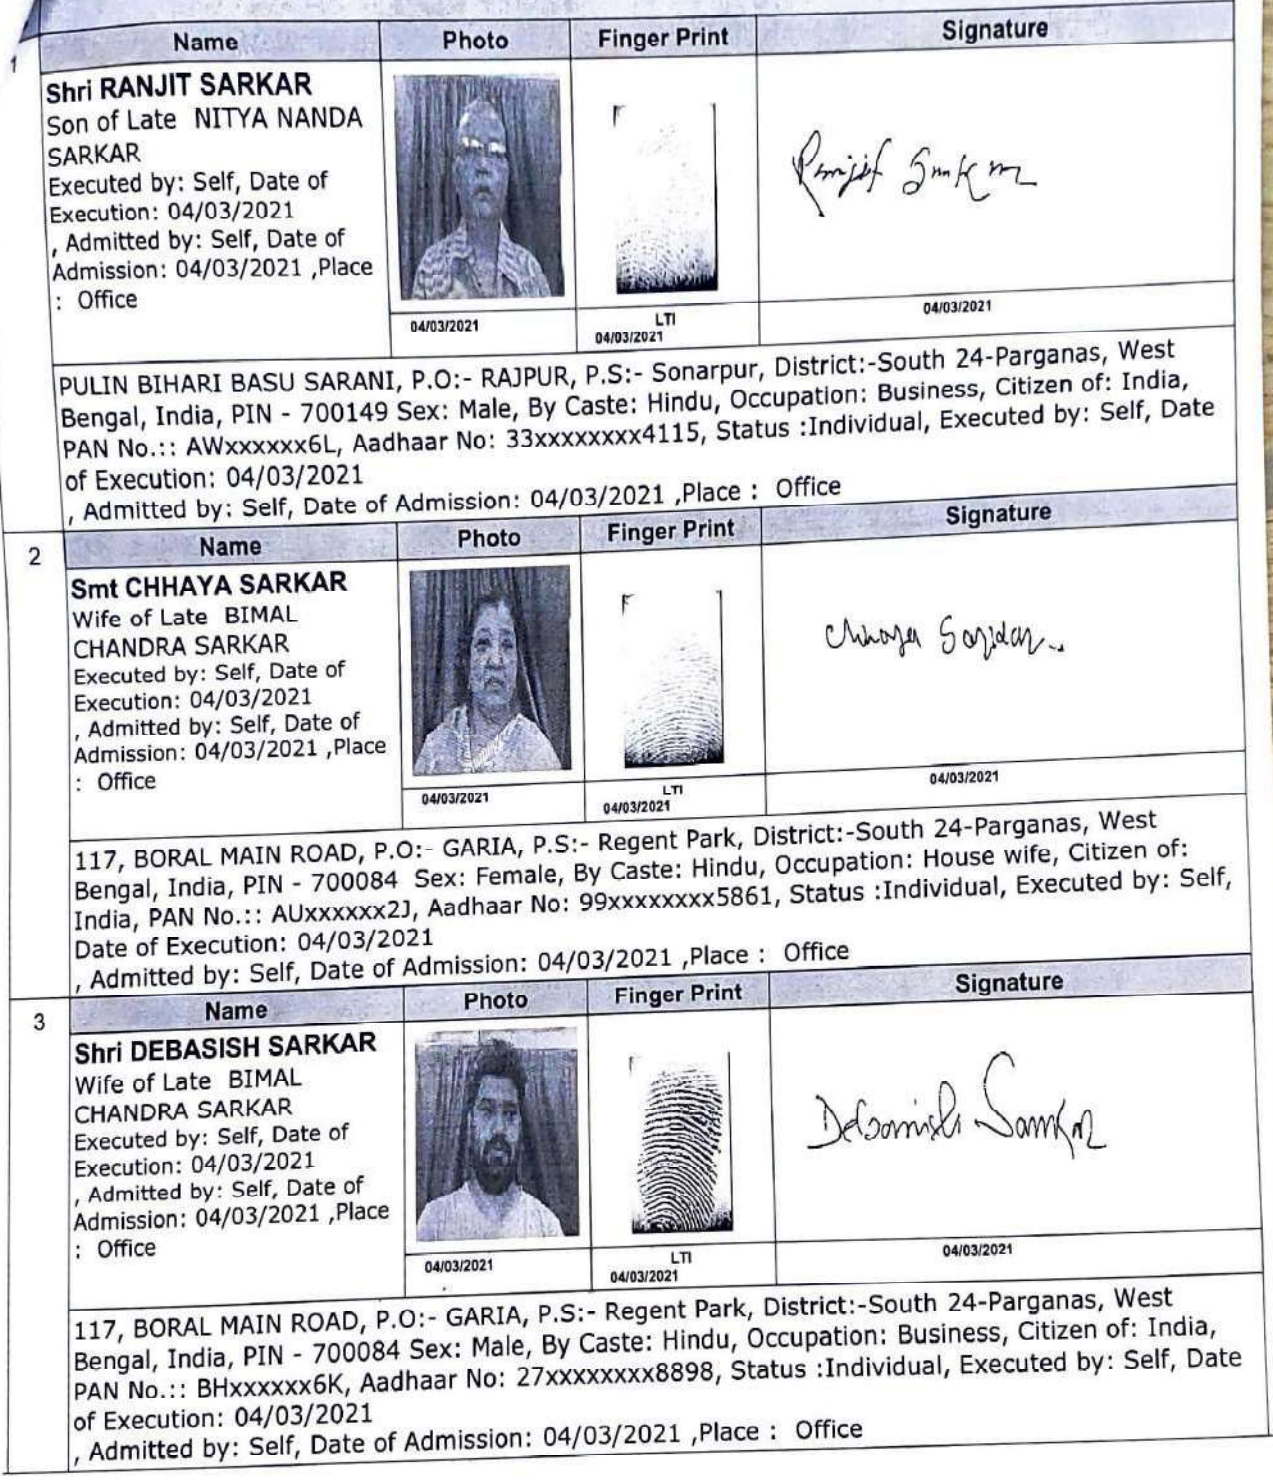 Name Photo Finger Print Signature
1
Shri RANJIT SARKAR
Son of Late NITYA NANDA
SARKAR
Executed by: Self, Date of
Execution: 04/03/2021
, Admitted by: Self, Date of
Admission: 04/03/2021 ,Place
: Office
Ranjit Sarkar
04/03/2021
LTI
04/03/2021
04/03/2021
PULIN BIHARI BASU SARANI, P.O:- RAJPUR, P.S:- Sonarpur, District:-South 24-Parganas, West
Bengal, India, PIN - 700149 Sex: Male, By Caste: Hindu, Occupation: Business, Citizen of: India,
PAN No.:: AWxxxxxx6L, Aadhaar No: 33xxxxxxxx4115, Status :Individual, Executed by: Self, Date
of Execution: 04/03/2021
, Admitted by: Self, Date of Admission: 04/03/2021 ,Place : Office
2 Name Photo Finger Print Signature
Smt CHHAYA SARKAR
Wife of Late BIMAL
CHANDRA SARKAR
Executed by: Self, Date of
Execution: 04/03/2021
, Admitted by: Self, Date of
Admission: 04/03/2021 ,Place
: Office
Chhaya Sarkar
04/03/2021
LTI
04/03/2021
04/03/2021
117, BORAL MAIN ROAD, P.O:- GARIA, P.S:- Regent Park, District:-South 24-Parganas, West
Bengal, India, PIN - 700084 Sex: Female, By Caste: Hindu, Occupation: House wife, Citizen of:
India, PAN No.:: AUxxxxxx2J, Aadhaar No: 99xxxxxxxx5861, Status :Individual, Executed by: Self,
Date of Execution: 04/03/2021
, Admitted by: Self, Date of Admission: 04/03/2021 ,Place : Office
3 Name Photo Finger Print Signature
Shri DEBASISH SARKAR
Wife of Late BIMAL
CHANDRA SARKAR
Executed by: Self, Date of
Execution: 04/03/2021
, Admitted by: Self, Date of
Admission: 04/03/2021 ,Place
: Office
Debasish Sarkar
04/03/2021
LTI
04/03/2021
04/03/2021
117, BORAL MAIN ROAD, P.O:- GARIA, P.S:- Regent Park, District:-South 24-Parganas, West
Bengal, India, PIN - 700084 Sex: Male, By Caste: Hindu, Occupation: Business, Citizen of: India,
PAN No.:: BHxxxxxx6K, Aadhaar No: 27xxxxxxxx8898, Status :Individual, Executed by: Self, Date
of Execution: 04/03/2021
, Admitted by: Self, Date of Admission: 04/03/2021 ,Place : Office